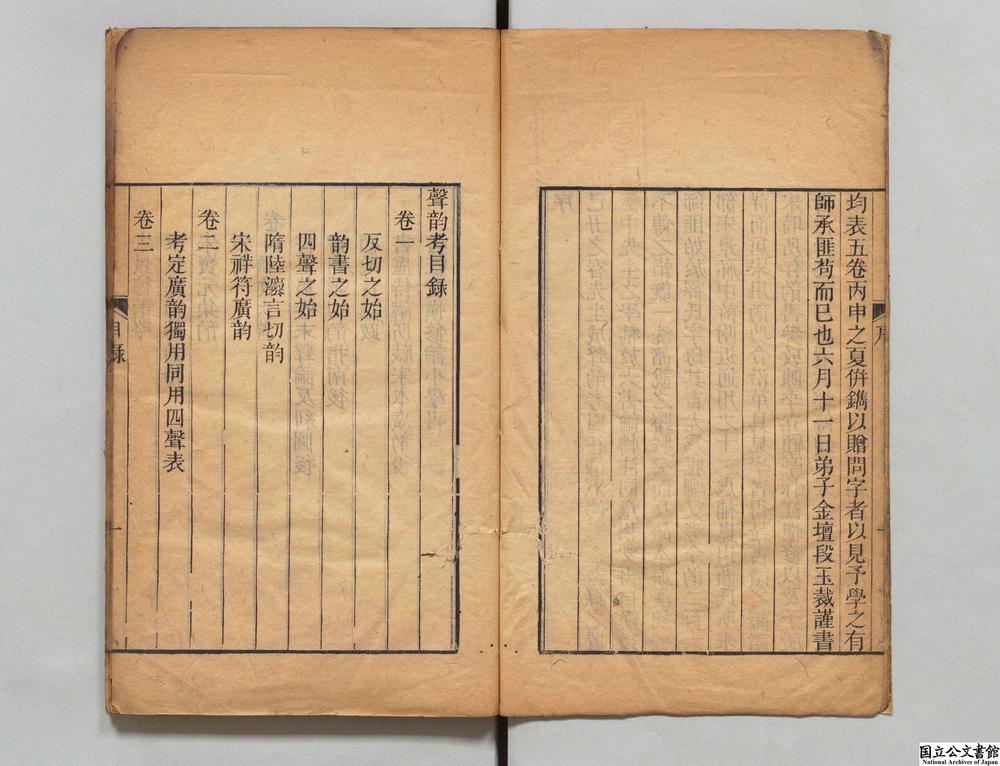 均表五卷丙申之夏併鐫以贈問字者以見予學之有
師承匪茍而已也六月十一日弟子金壇段玉裁謹書
序
聲韵考目錄
卷一
反切之始
韵書之始
四聲之始
隋陸灋言切韵
宋祥符廣韵
卷二
考定廣韵獨用同用四聲表
卷三
目錄
一
国立公文書館
National Archives of Japan